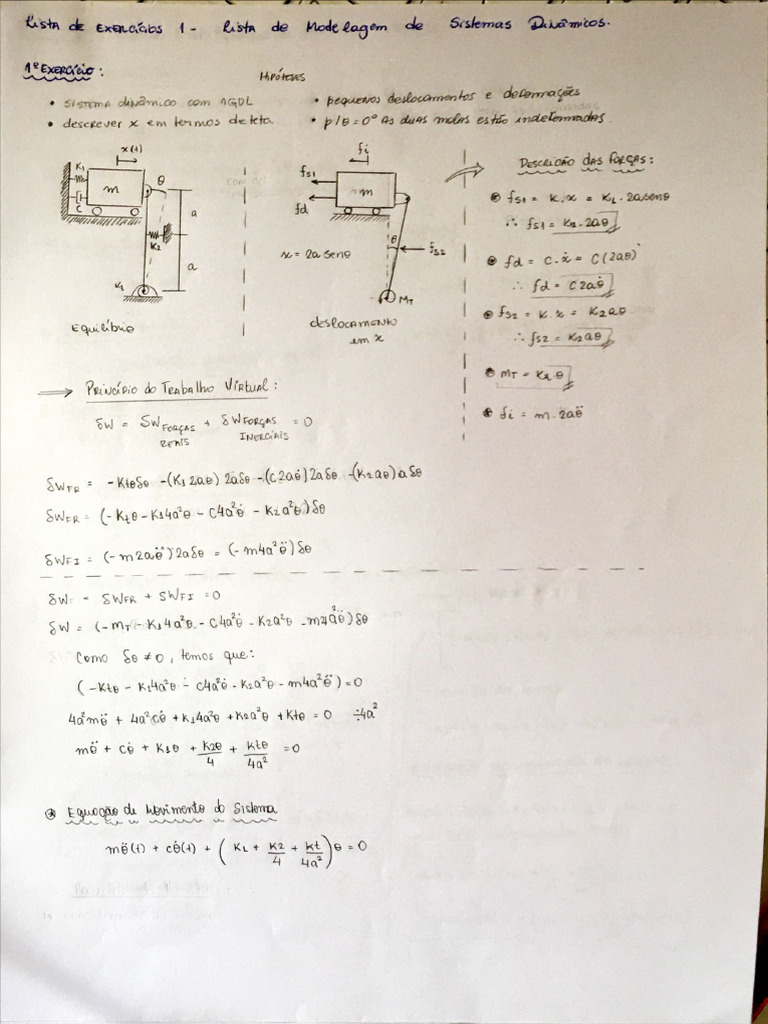 Lista de Exercícios 1 - Lista de Modelagem de Sistemas Dinâmicos.
1º Exercício:
Hipóteses
• sistema dinâmico com 1GDL
• descrever x em termos de teta
• pequenos deslocamentos e deformações
• p/θ=0º as duas molas estão indeformadas
x(t)
K1
m
C
θ
a
K2
a
Kt
Equilíbrio
fi
fs1
m
fd
x = 2a senθ
θ
fs2
MT
deslocamento
em x
Descrição das Forças:
fs1 = K.x = K1.2a senθ
∴ fs1 = K1.2aθ
fd = C.ẋ = C(2aθ)˙
∴ fd = C2aθ̇
fs2 = K.x = K2aθ
∴ fs2 = K2aθ
MT = Kt.θ
fi = m.2aθ̈
⇒ Princípio do Trabalho Virtual:
δW = δW FORÇAS REAIS + δW FORÇAS INERCIAIS = 0
δWFR = -Ktθδθ -(K1 2aθ) 2aδθ -(C2aθ̇)2aδθ -(K2aθ)aδθ
δWFR = (-Ktθ - K14a²θ - C4a²θ̇ - K2a²θ)δθ
δWFI = (-m2aθ̈)2aδθ = (-m4a²θ̈)δθ
δW = δWFR + δWFI = 0
δW = (-MT - K14a²θ - C4a²θ̇ - K2a²θ - m4a²θ̈)δθ
Como δθ ≠ 0, temos que:
(-Ktθ - K14a²θ - C4a²θ̇ - K2a²θ - m4a²θ̈) = 0
4a²mθ̈ + 4a²cθ̇ + K14a²θ + K2a²θ + Ktθ = 0 ÷4a²
mθ̈ + cθ̇ + K1θ + K2θ/4 + Ktθ/4a² = 0
Equação de Movimento do Sistema
mθ̈(t) + cθ̇(t) + (K1 + K2/4 + Kt/4a²)θ = 0